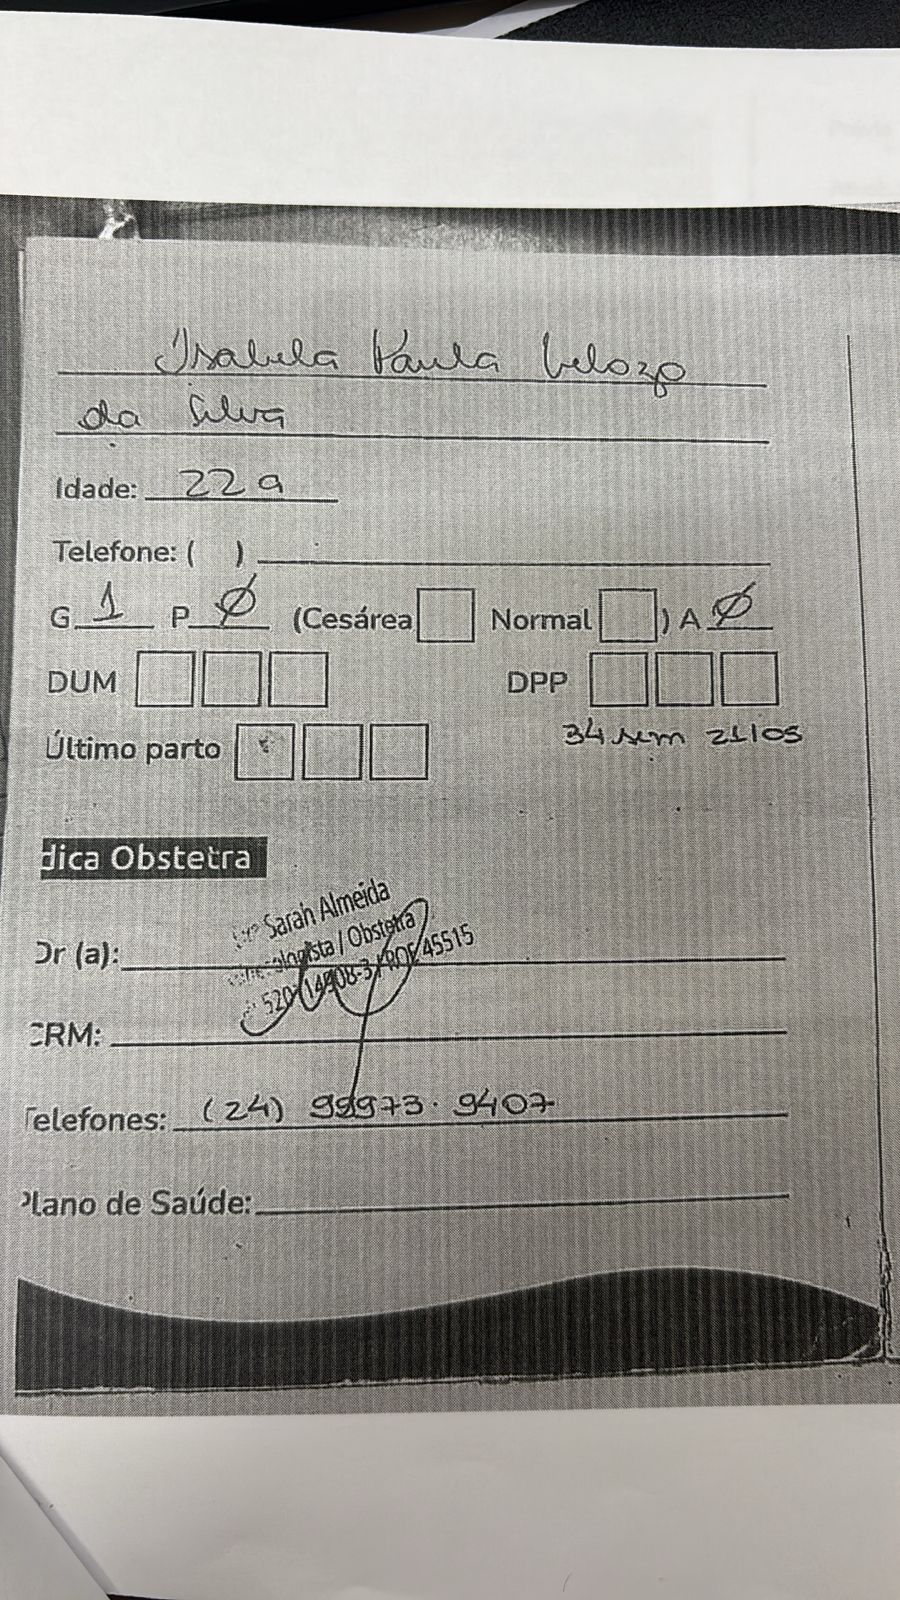 Isabela Paula Velozo
da Silva
Idade: 22 a
Telefone: ( )
G 1 P Ø (Cesárea Normal ) A Ø
DUM DPP
34 sem 21/05
Último parto
dica Obstetra
Sarah Almeida
Dr (a): ologista / Obstetra
520-14908-3 / RQE 45515
CRM:
Telefones: (24) 99973.9407
Plano de Saúde: